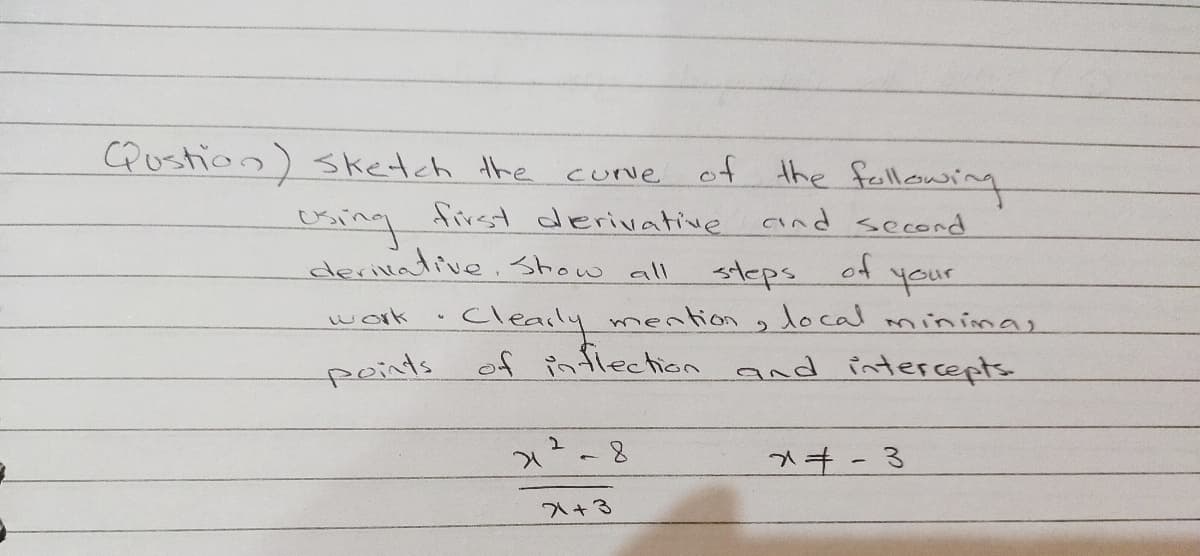 Qustion) sketch the curve of the following
using first derivative and second
derivative. Show all steps of your
work. Clearly mention, local minima,
points of inflection and intercepts.
x² - 8 x ≠ - 3
x + 3